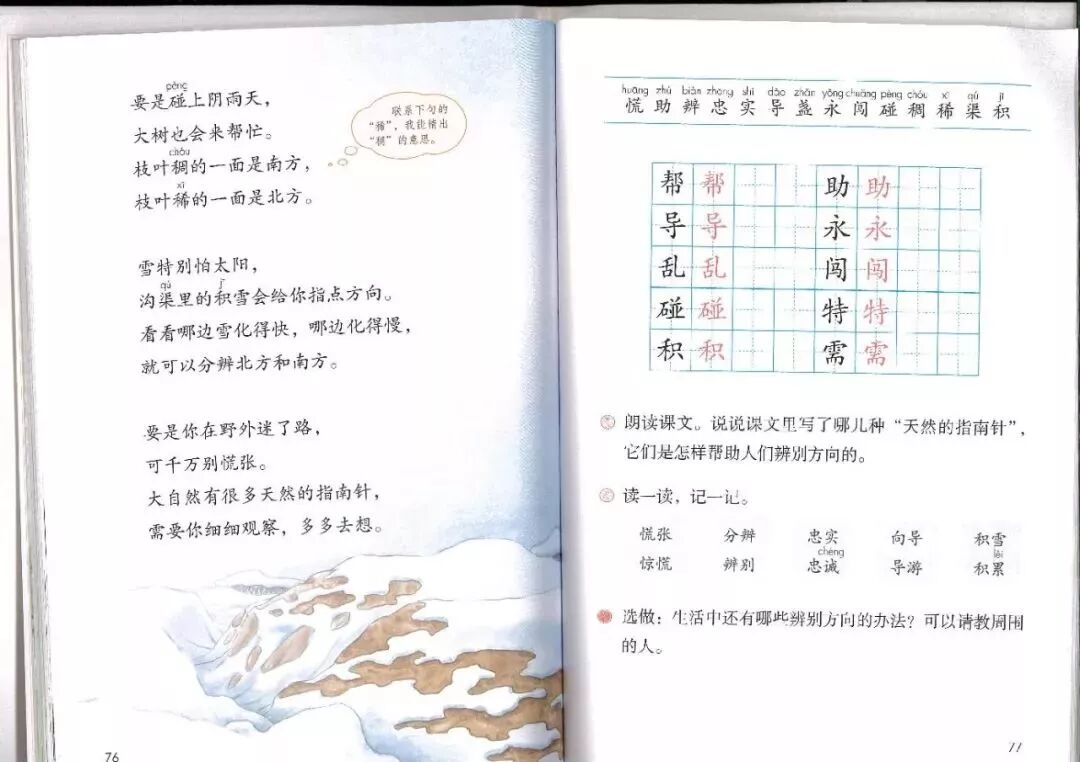 pèng
要是碰上阴雨天，
大树也会来帮忙。
chóu
枝叶稠的一面是南方，
xī
枝叶稀的一面是北方。
联系下句的
“稀”，我能猜出
“稠”的意思。
雪特别怕太阳，
qú jī
沟渠里的积雪会给你指点方向。
看看哪边雪化得快，哪边化得慢，
就可以分辨北方和南方。
要是你在野外迷了路，
可千万别慌张。
大自然有很多天然的指南针，
需要你细细观察，多多去想。
76
huāng zhù biàn zhōng shí dǎo zhǎn yǒng chuǎng pèng chóu xī qú jī
慌 助 辨 忠 实 导 盏 永 闯 碰 稠 稀 渠 积
帮 帮 助 助
导 导 永 永
乱 乱 闯 闯
碰 碰 特 特
积 积 需 需
朗读课文。说说课文里写了哪几种“天然的指南针”，
它们是怎样帮助人们辨别方向的。
读一读，记一记。
慌张 分辨 忠实 向导 积雪
chéng lěi
惊慌 辨别 忠诚 导游 积累
选做：生活中还有哪些辨别方向的办法？可以请教周围
的人。
77